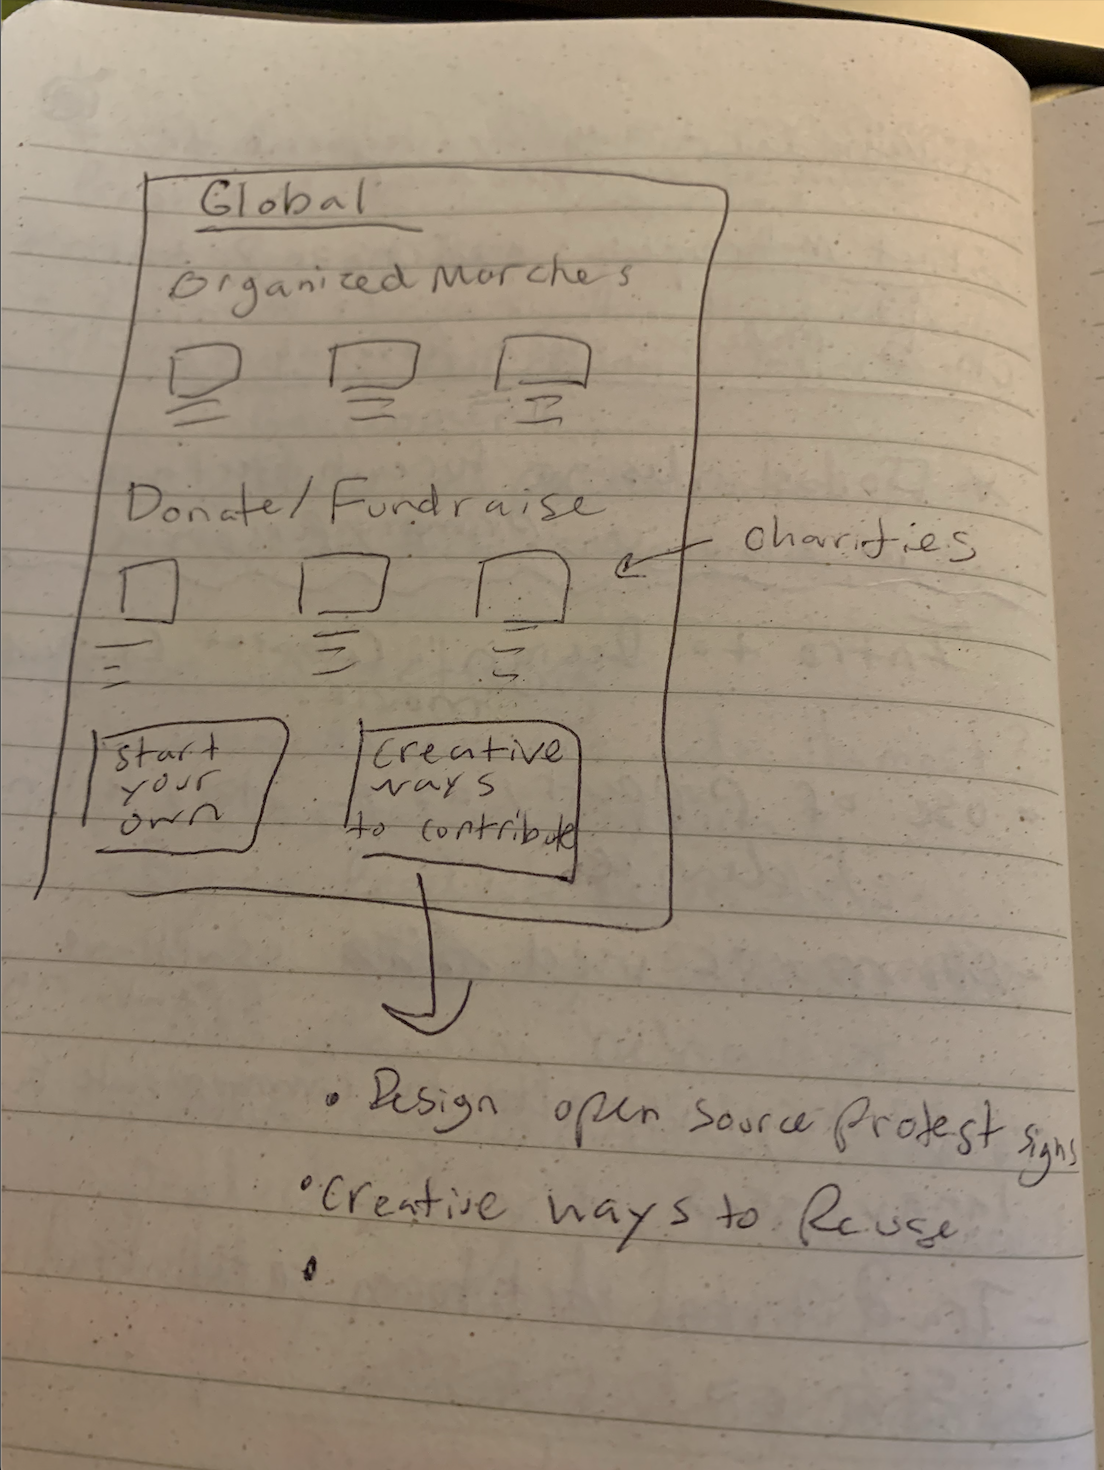 Global
Organized Marches
Donate/Fundraise
charities
start
your
own
creative
ways
to contribute
• Design open source protest signs
• Creative ways to Reuse
•